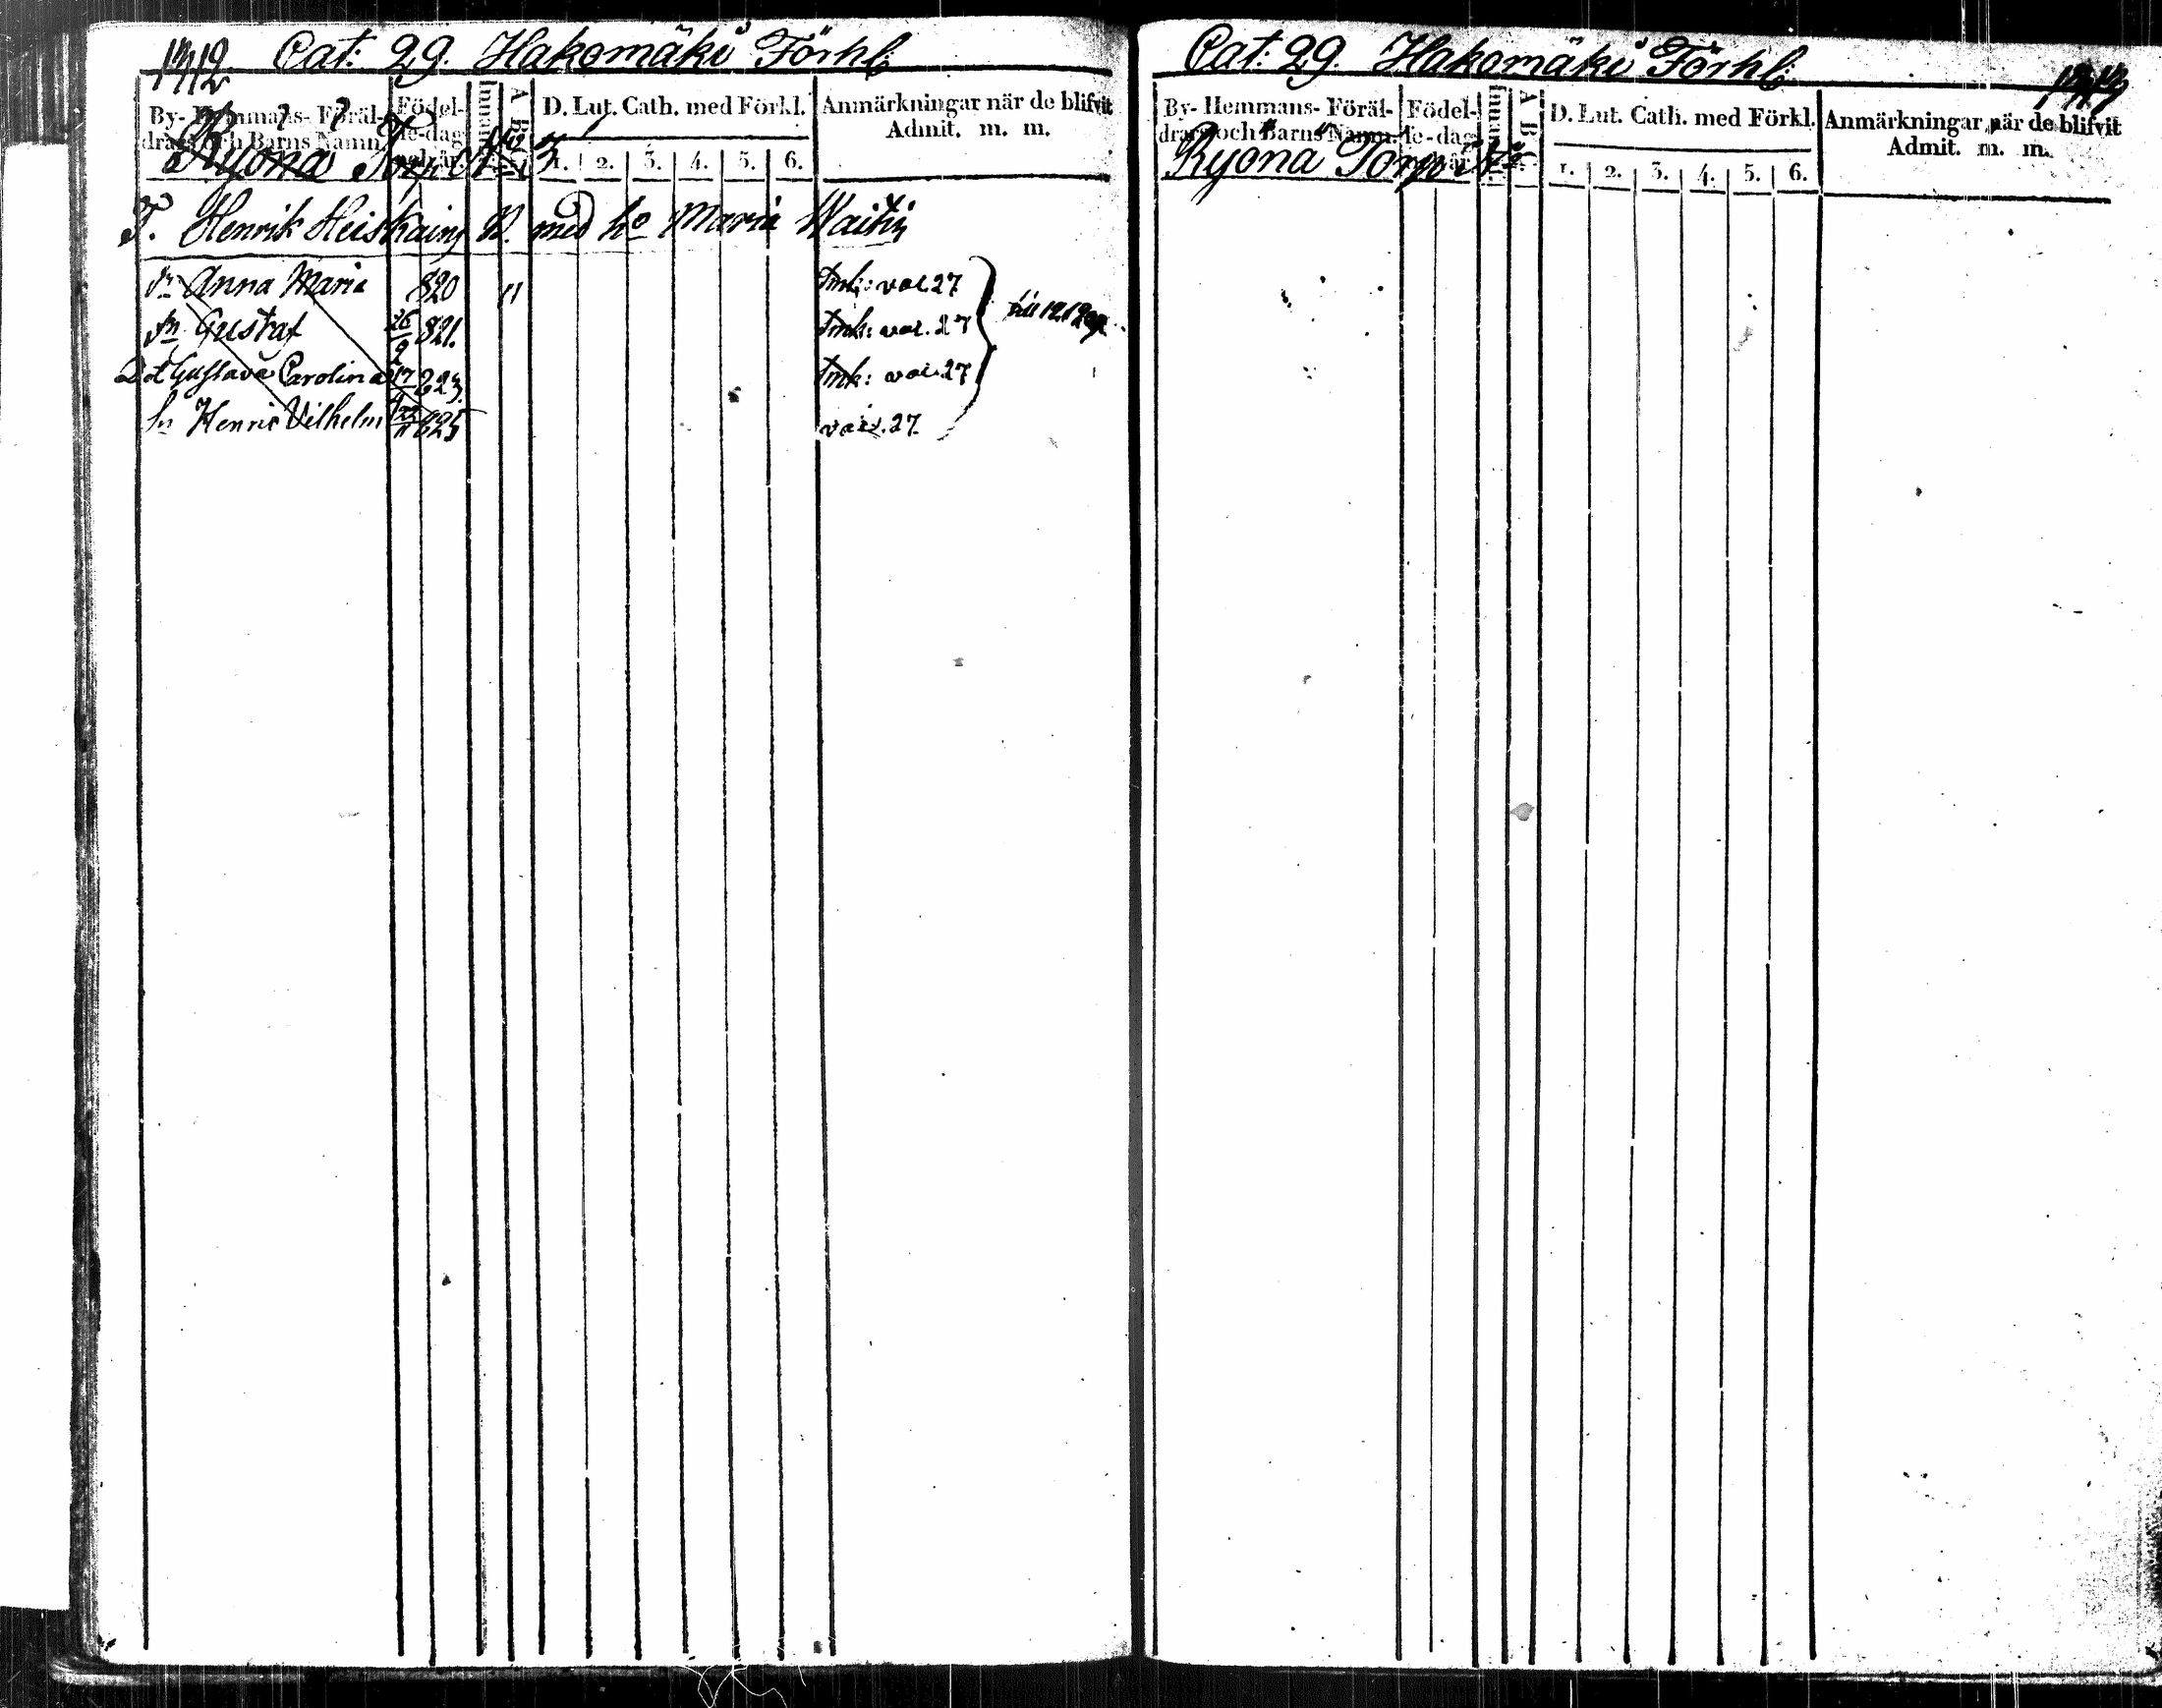 1712 Cat: 29. Hakomäki Förhl
By- Hemmans- Föräl-
drars och Barns Namn.
Födel-
se-dag
och år.
Innan
A B C
D. Lut. Cath. med Förkl.
1. 2. 3. 4. 5. 6.
Anmärkningar när de blifvit
Admit. m. m.
Ryona Torp No 3
T. Henrik Heiskain N. med ho Maria Waitin
Anna Maria 820 11 var 27
Sn Gustaf 26/9 821. var. 27
Dr Gustava Carolina 17 823. var. 27
Sn Henric Vilhelm 825 var. 27
Cat: 29. Hakomäki Förhl
By- Hemmans- Föräl-
drars och Barns Namn.
Födel-
se-dag
och år.
Innan
A B C
D. Lut. Cath. med Förkl.
1. 2. 3. 4. 5. 6.
Anmärkningar när de blifvit
Admit. m. m.
Ryona Torp No